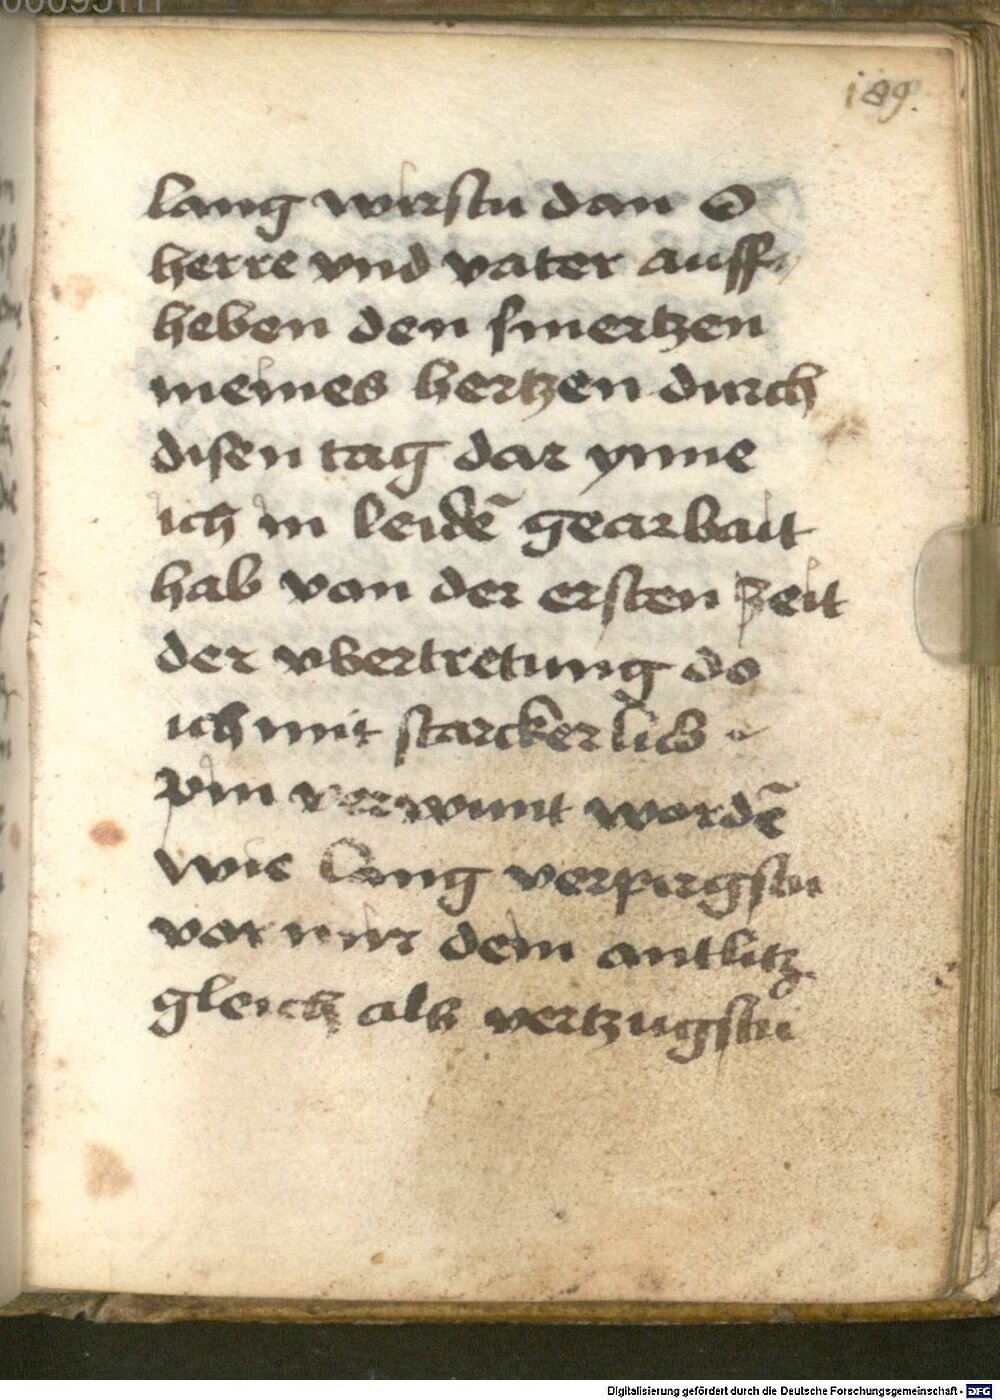 189.
lang wirstu dan O
herre vnd vater auff
heben den smertzen
meines hertzen durch
disen tag dar ynne
ich in leidē gearbait
hab von der ersten zeit
der vbertretung do
ich mit starcker lieb
pin verwunt wordē
wie lang verpirgstu
vor mir dein antlitz
gleich als vertzugstu
Digitalisierung gefördert durch die Deutsche Forschungsgemeinschaft - DFG